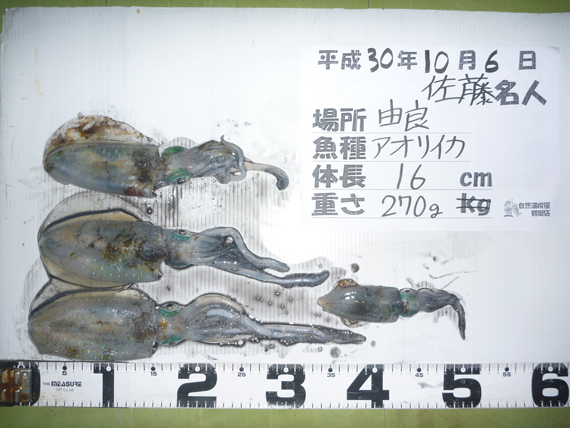 平成30年10月6日
佐藤名人
場所 由良
魚種 アオリイカ
体長 16 cm
重さ 270g kg
自然満喫屋
鶴岡店
THE MEASURE
5 1 15 2 25 3 35 4 45 5 55 6